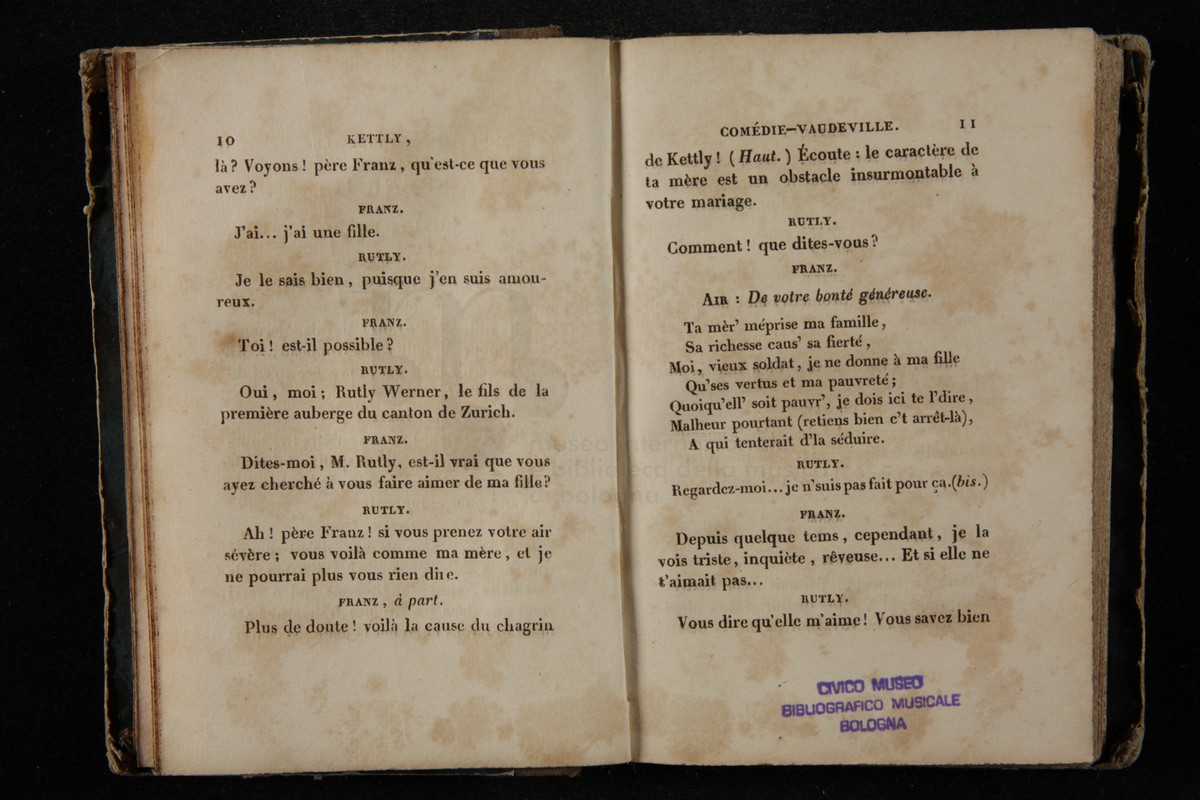 10 KETTLY,
là ? Voyons ! père Franz , qu'est-ce que vous
avez ?
FRANZ.
J'ai... j'ai une fille.
RUTLY.
Je le sais bien , puisque j'en suis amou-
reux.
FRANZ.
Toi ! est-il possible ?
RUTLY.
Oui , moi ; Rutly Werner , le fils de la
première auberge du canton de Zurich.
FRANZ.
Dites-moi , M. Rutly, est-il vrai que vous
ayez cherché à vous faire aimer de ma fille ?
RUTLY.
Ah ! père Franz ! si vous prenez votre air
sévère ; vous voilà comme ma mère , et je
ne pourrai plus vous rien dire.
FRANZ , à part.
Plus de doute ! voilà la cause du chagrin
COMÉDIE-VAUDEVILLE. 11
de Kettly ! ( Haut. ) Écoute : le caractère de
ta mère est un obstacle insurmontable à
votre mariage.
RUTLY.
Comment ! que dites-vous ?
FRANZ.
AIR : De votre bonté généreuse.
Ta mèr' méprise ma famille ,
Sa richesse caus' sa fierté ,
Moi, vieux soldat , je ne donne à ma fille
Qu'ses vertus et ma pauvreté ;
Quoiqu'ell' soit pauvr', je dois ici te l'dire ,
Malheur pourtant (retiens bien c't arrêt-là),
A qui tenterait d'la séduire.
RUTLY.
Regardez-moi... je n'suis pas fait pour ça.(bis.)
FRANZ.
Depuis quelque tems , cependant , je la
vois triste , inquiète , rêveuse... Et si elle ne
t'aimait pas...
RUTLY.
Vous dire qu'elle m'aime ! Vous savez bien
CIVICO MUSEO
BIBLIOGRAFICO MUSICALE
BOLOGNA
museo inter
biblioteca della mu
di bologna